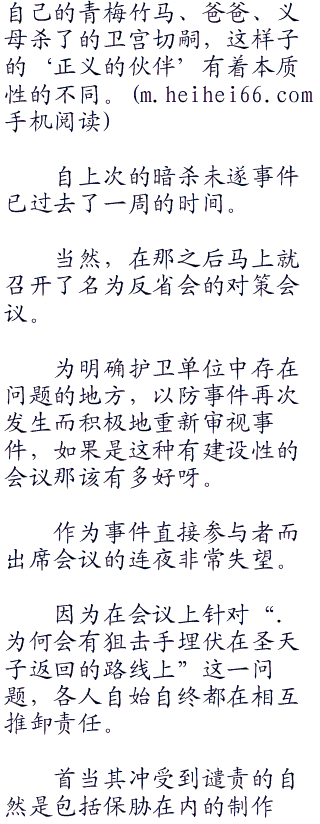 自己的青梅竹马、爸爸、义
母杀了的卫宫切嗣，这样子
的‘正义的伙伴’有着本质
性的不同。(m.heihei66.com
手机阅读)
自上次的暗杀未遂事件
已过去了一周的时间。
当然，在那之后马上就
召开了名为反省会的对策会
议。
为明确护卫单位中存在
问题的地方，以防事件再次
发生而积极地重新审视事
件，如果是这种有建设性的
会议那该有多好呀。
作为事件直接参与者而
出席会议的连夜非常失望。
因为在会议上针对“.
为何会有狙击手埋伏在圣天
子返回的路线上”这一问
题，各人自始自终都在相互
推卸责任。
首当其冲受到谴责的自
然是包括保胁在内的制作